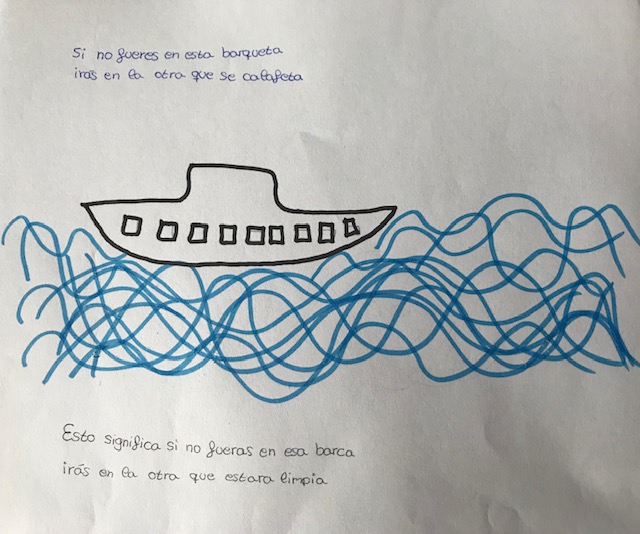 Si no fueres en esta barqueta
iras en la otra que se calafeta
Esto significa si no fueras en esa barca
irás en la otra que estara limpia